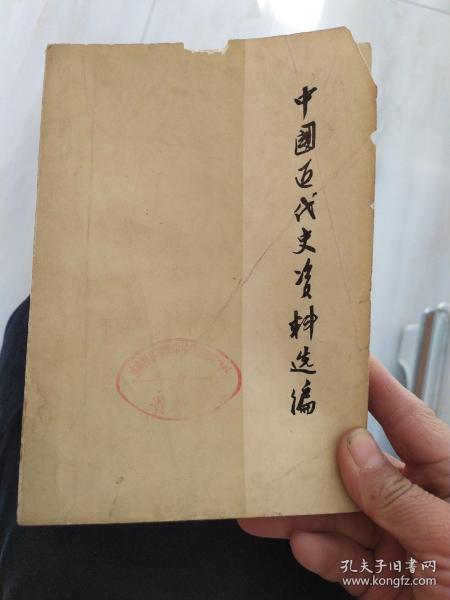 中國近代史资料选编
孔夫子旧书网
www.kongfz.com